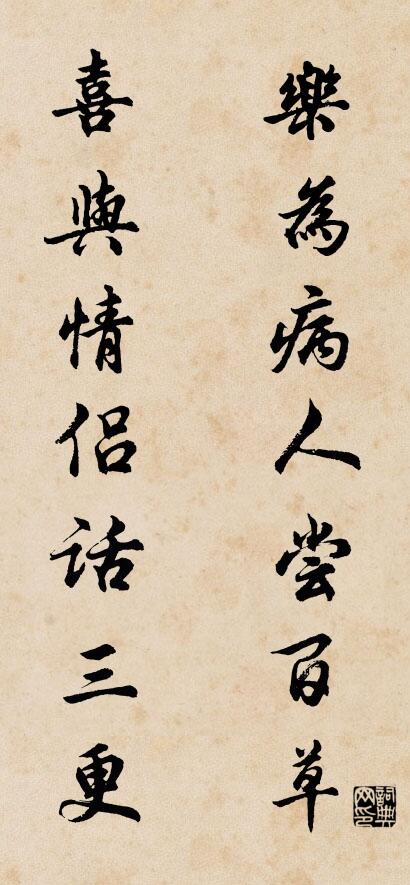 樂為病人尝百草
喜與情侣话三更
詞典网印